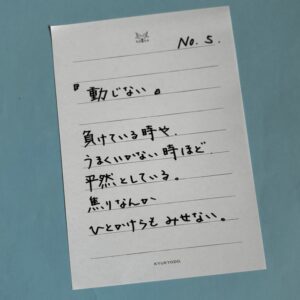 No. 5.
『動じない』
負けている時や、
うまくいかない時ほど
平然としている。
焦りなんか
ひとかけらもみせない。
KYUKYODO